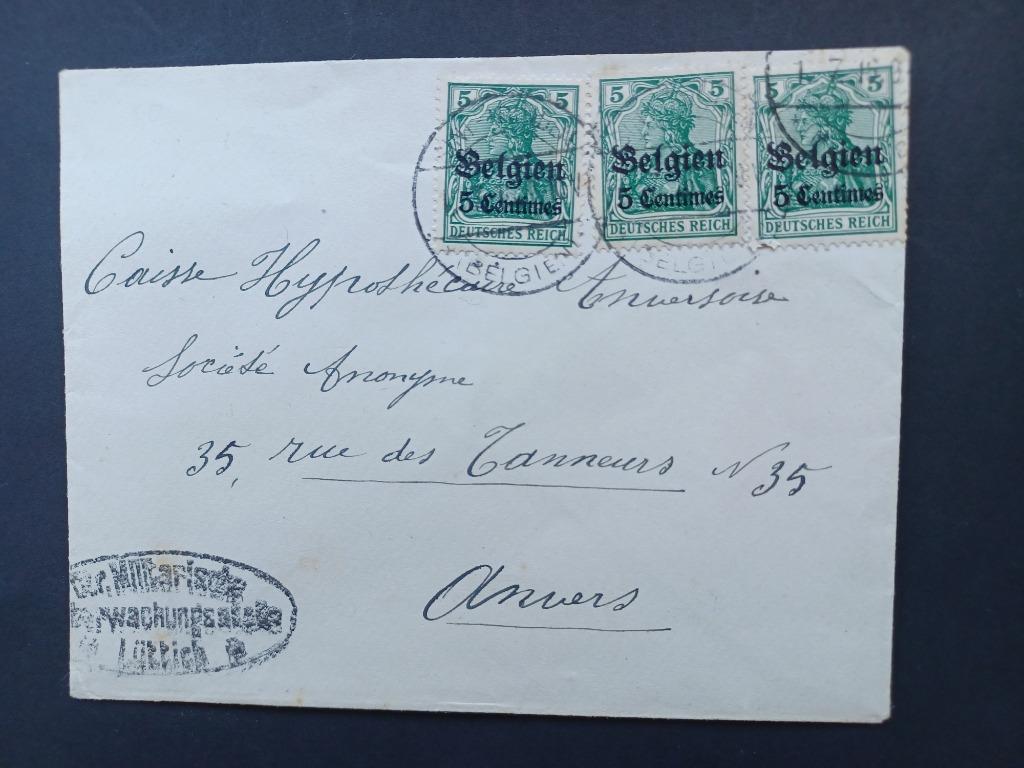 5 5 5 5 5 5
1. 7. 16
Belgien Belgien Belgien
5 Centimes 5 Centimes 5 Centimes
DEUTSCHES REICH DEUTSCHES REICH DEUTSCHES REICH
(BELGIEN)
Caisse Hypothécaire Anversoise
Société Anonyme
35, rue des Tanneurs N 35
Anvers
Militärische
Lüttich